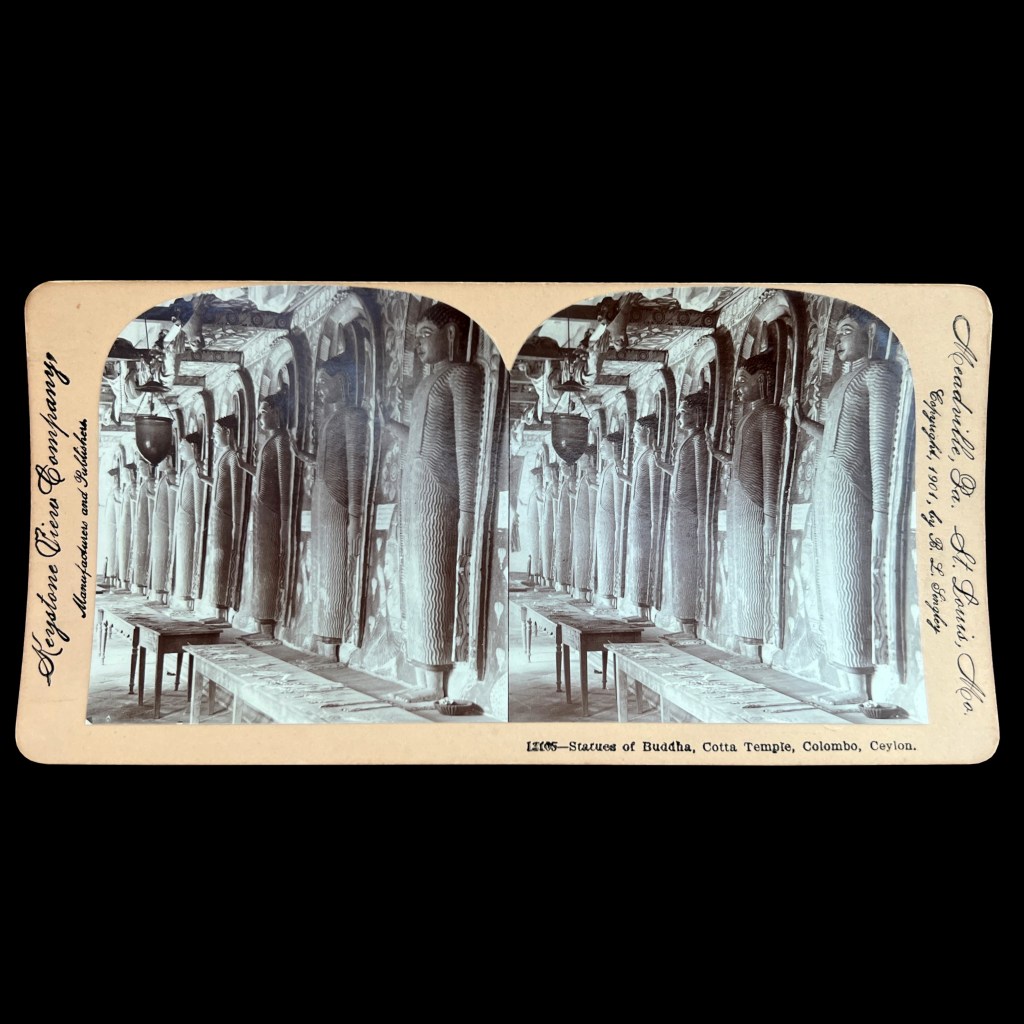 Keystone View Company,
Manufacturers and Publishers.
Meadville, Pa. St. Louis, Mo.
Copyright, 1901, by B. L. Singley
—Statues of Buddha, Cotta Temple, Colombo, Ceylon.